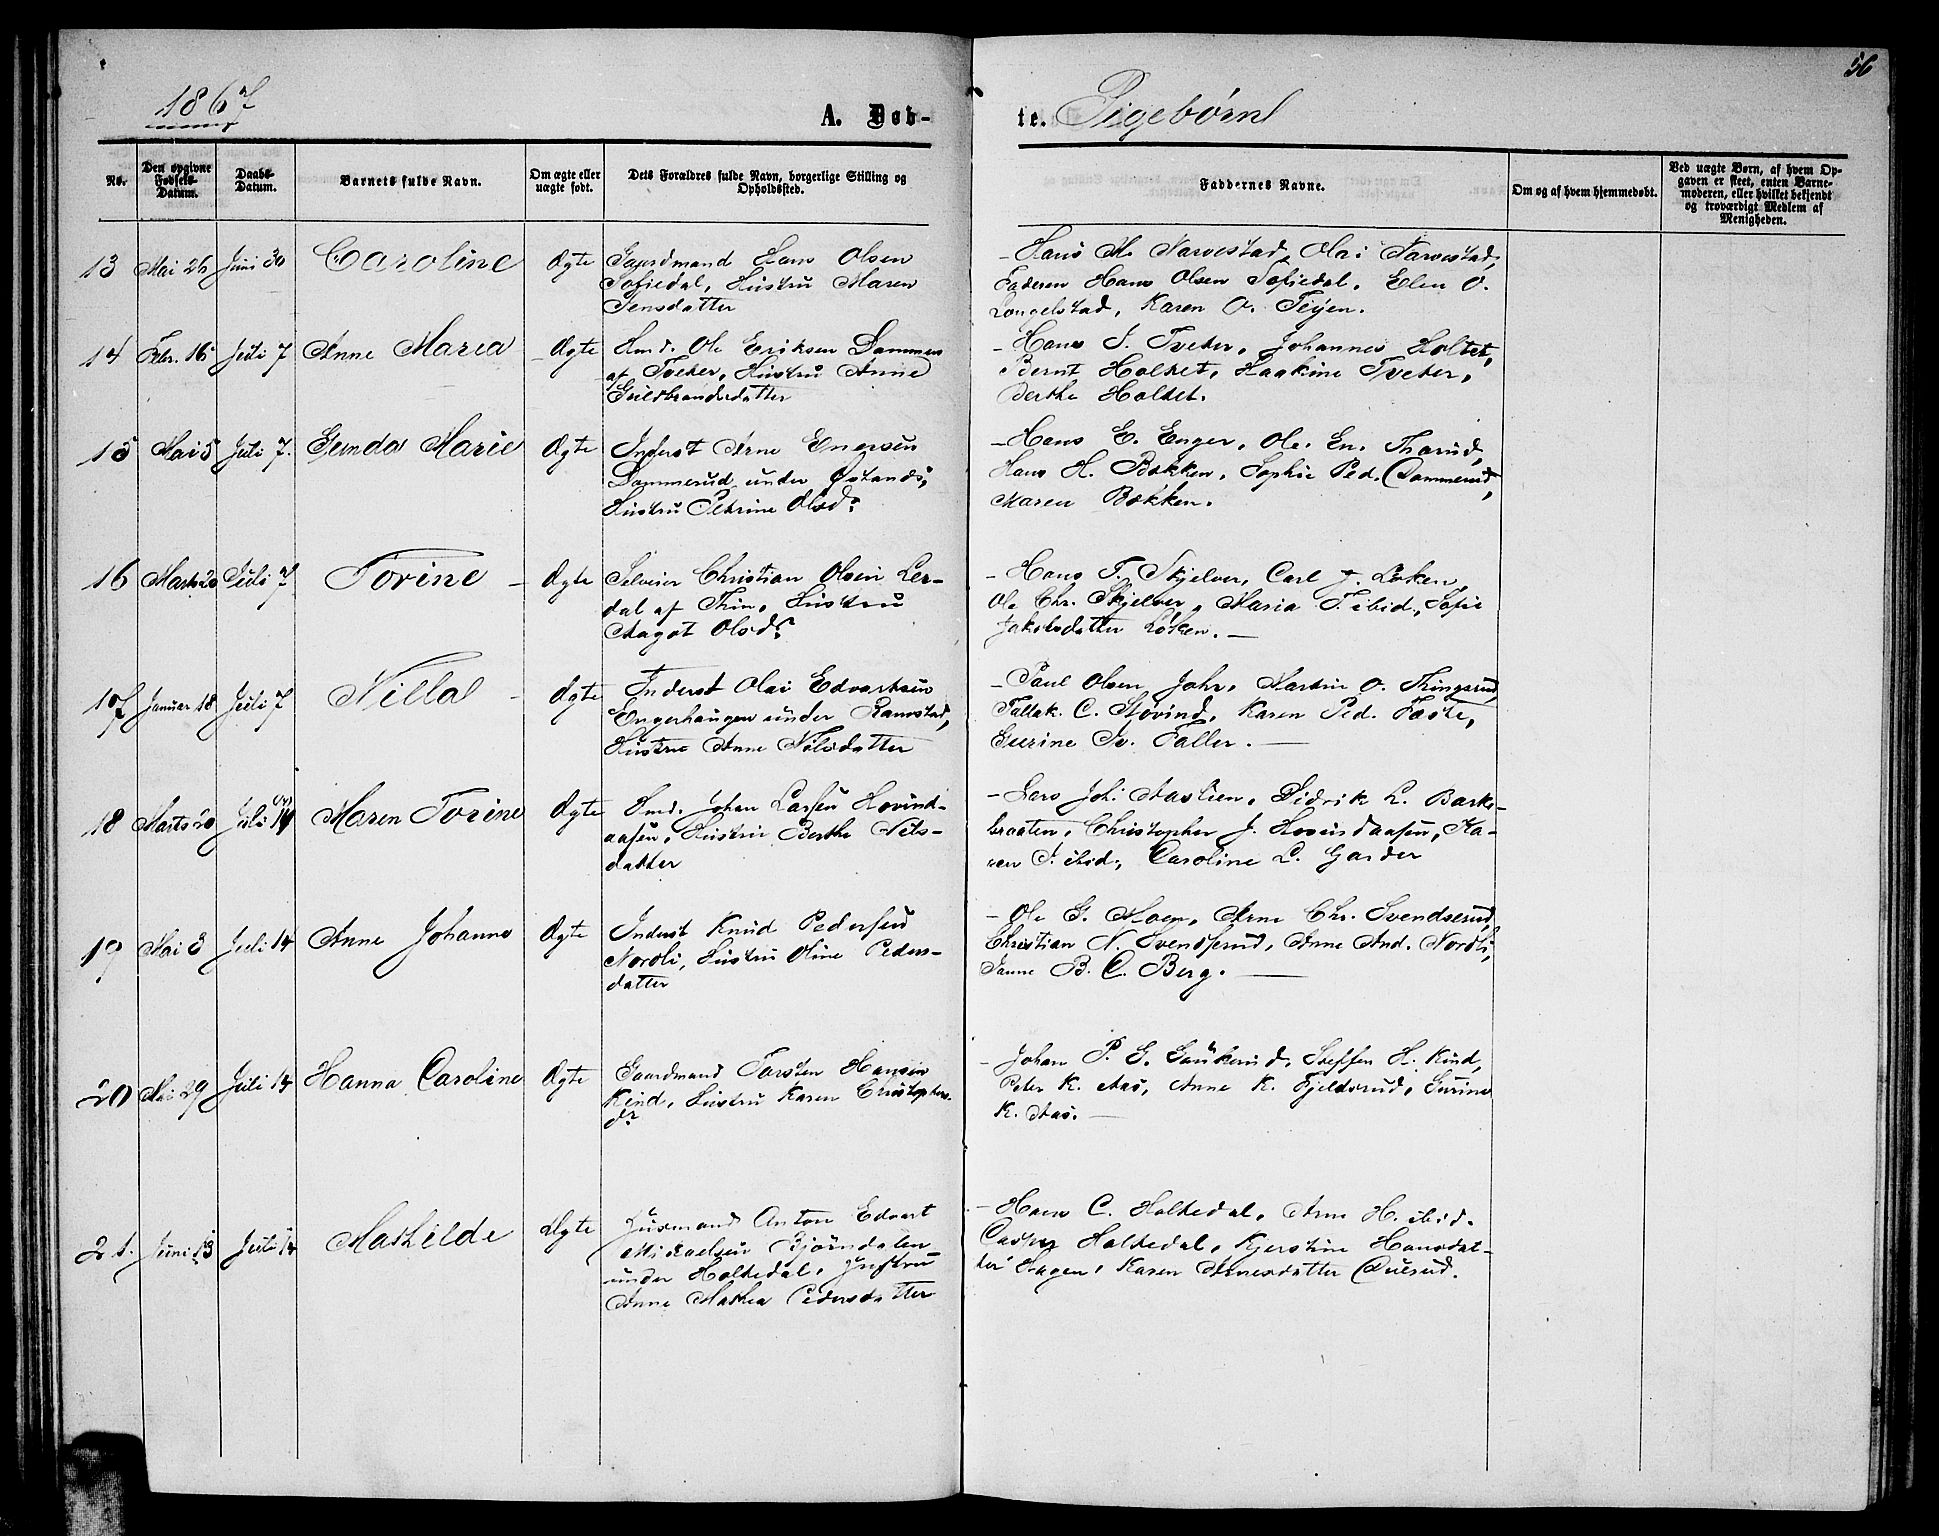 56
1867
A. Døb-
te. Pigebørn
No.
Den opgivne Fødsels-Datum.
Daabs-Datum.
Barnets fulde Navn.
Om ægte eller uægte født.
Dets Forældres fulde Navn, borgerlige Stilling og Opholdssted.
Faddernes Navne.
Om og af hvem hjemmedøbt.
Ved uægte Børn, af hvem Op-
gaven er skeet, enten Barne-
moderen, eller hvilket bekjendt
og troværdigt Medlem af
Menigheden.
13 Mai 26 Juni 30 Caroline Ægte Gaardmand Hans Olsen
Sofiedal, Hustru Maren
Jensdatter
- Hans M. Narvestad, Olai Narvestad,
Faderen Hans Olsen Sofiedal, Elen O.
Longelstad, Karen O. Teien.
14 Febr. 16 Juli 7 Anne Maria Ægte Hmd. Ole Eriksen Dammen
af Tveter, Hustru Anne
Guldbrandsdatter
- Hans J. Tveter, Johannes Holtet,
Bernt Holtet, Haakine Tveter,
Berthe Holtet.
15 Mai 5 Juli 7. Gunda Marie Ægte Inderst Arne Engersen
Dammerud under Østands,
Hustru Petrine Olsdr
- Hans E. Enger, Ole En. Tharud,
Hans H. Bakken, Sophie Ped. Dammerud,
Maren Bakken.
16 Marts 20 Juli 7 Torine - Ægte Selveier Christian Olsen Ler-
dal af Thin, Hustru
Aagot Olsdr
- Hans T. Skjelver, Carl J. Løken,
Ole Chr. Skjelver, Maria T. ibid, Sofie
Jakobsdatter Løken. -
17 Januar 18 Juli 7 Nilla - Ægte Inderst Olai Edvartsen
Engerhaugen under Ramstad,
Hustru Anne Nilsdatter
- Paul Olsen Johr, Martin O. Thingsrud,
Tallak C. Hovind, Karen Ped. Faste,
Gurine Sv. Faller. -
18 Marts 20 Juli 14 Maren Torine Ægte Hmd. Johan Larsen Hovind-
aasen, Hustru Berthe Nils-
datter
- Lars Joh. Aaslien, Didrik L. Barke-
braaten, Christopher J. Hovindaasen, Ka-
ren J. ibid, Caroline L. Garder
19 Mai 3 Juli 14 Anne Johanne Ægte Inderst Knud Pedersen
Nordli, Hustru Oline Peders-
datter
- Ole G. Moen, Arne Chr. Svendserud,
Christian N. Svendserud, Anne And. Nordli,
Janne B. C. Berg. -
20 Mai 29 Juli 14 Hanna Caroline Ægte Gaardmand Torsten Hansen
Kind, Hustru Karen Christophers-
dr
- Johan P. G. Saukerud, Steffen H. Kind,
Peter K. Aas, Anne K. Fjeldsrud, Gurine
K. Aas. -
21. Juni 13 Juli 14 Mathilde Ægte Husmand Anton Edvart
Mikaelsen Bjørndalen
under Holtedal, Hustru
Anne Mathea Pedersdatter
- Hans C. Holtedal, Arne H. ibid.
Casper Holtedal, Kjerstine Hansdat-
ter Hagen, Karen Arnesdatter Duesud.